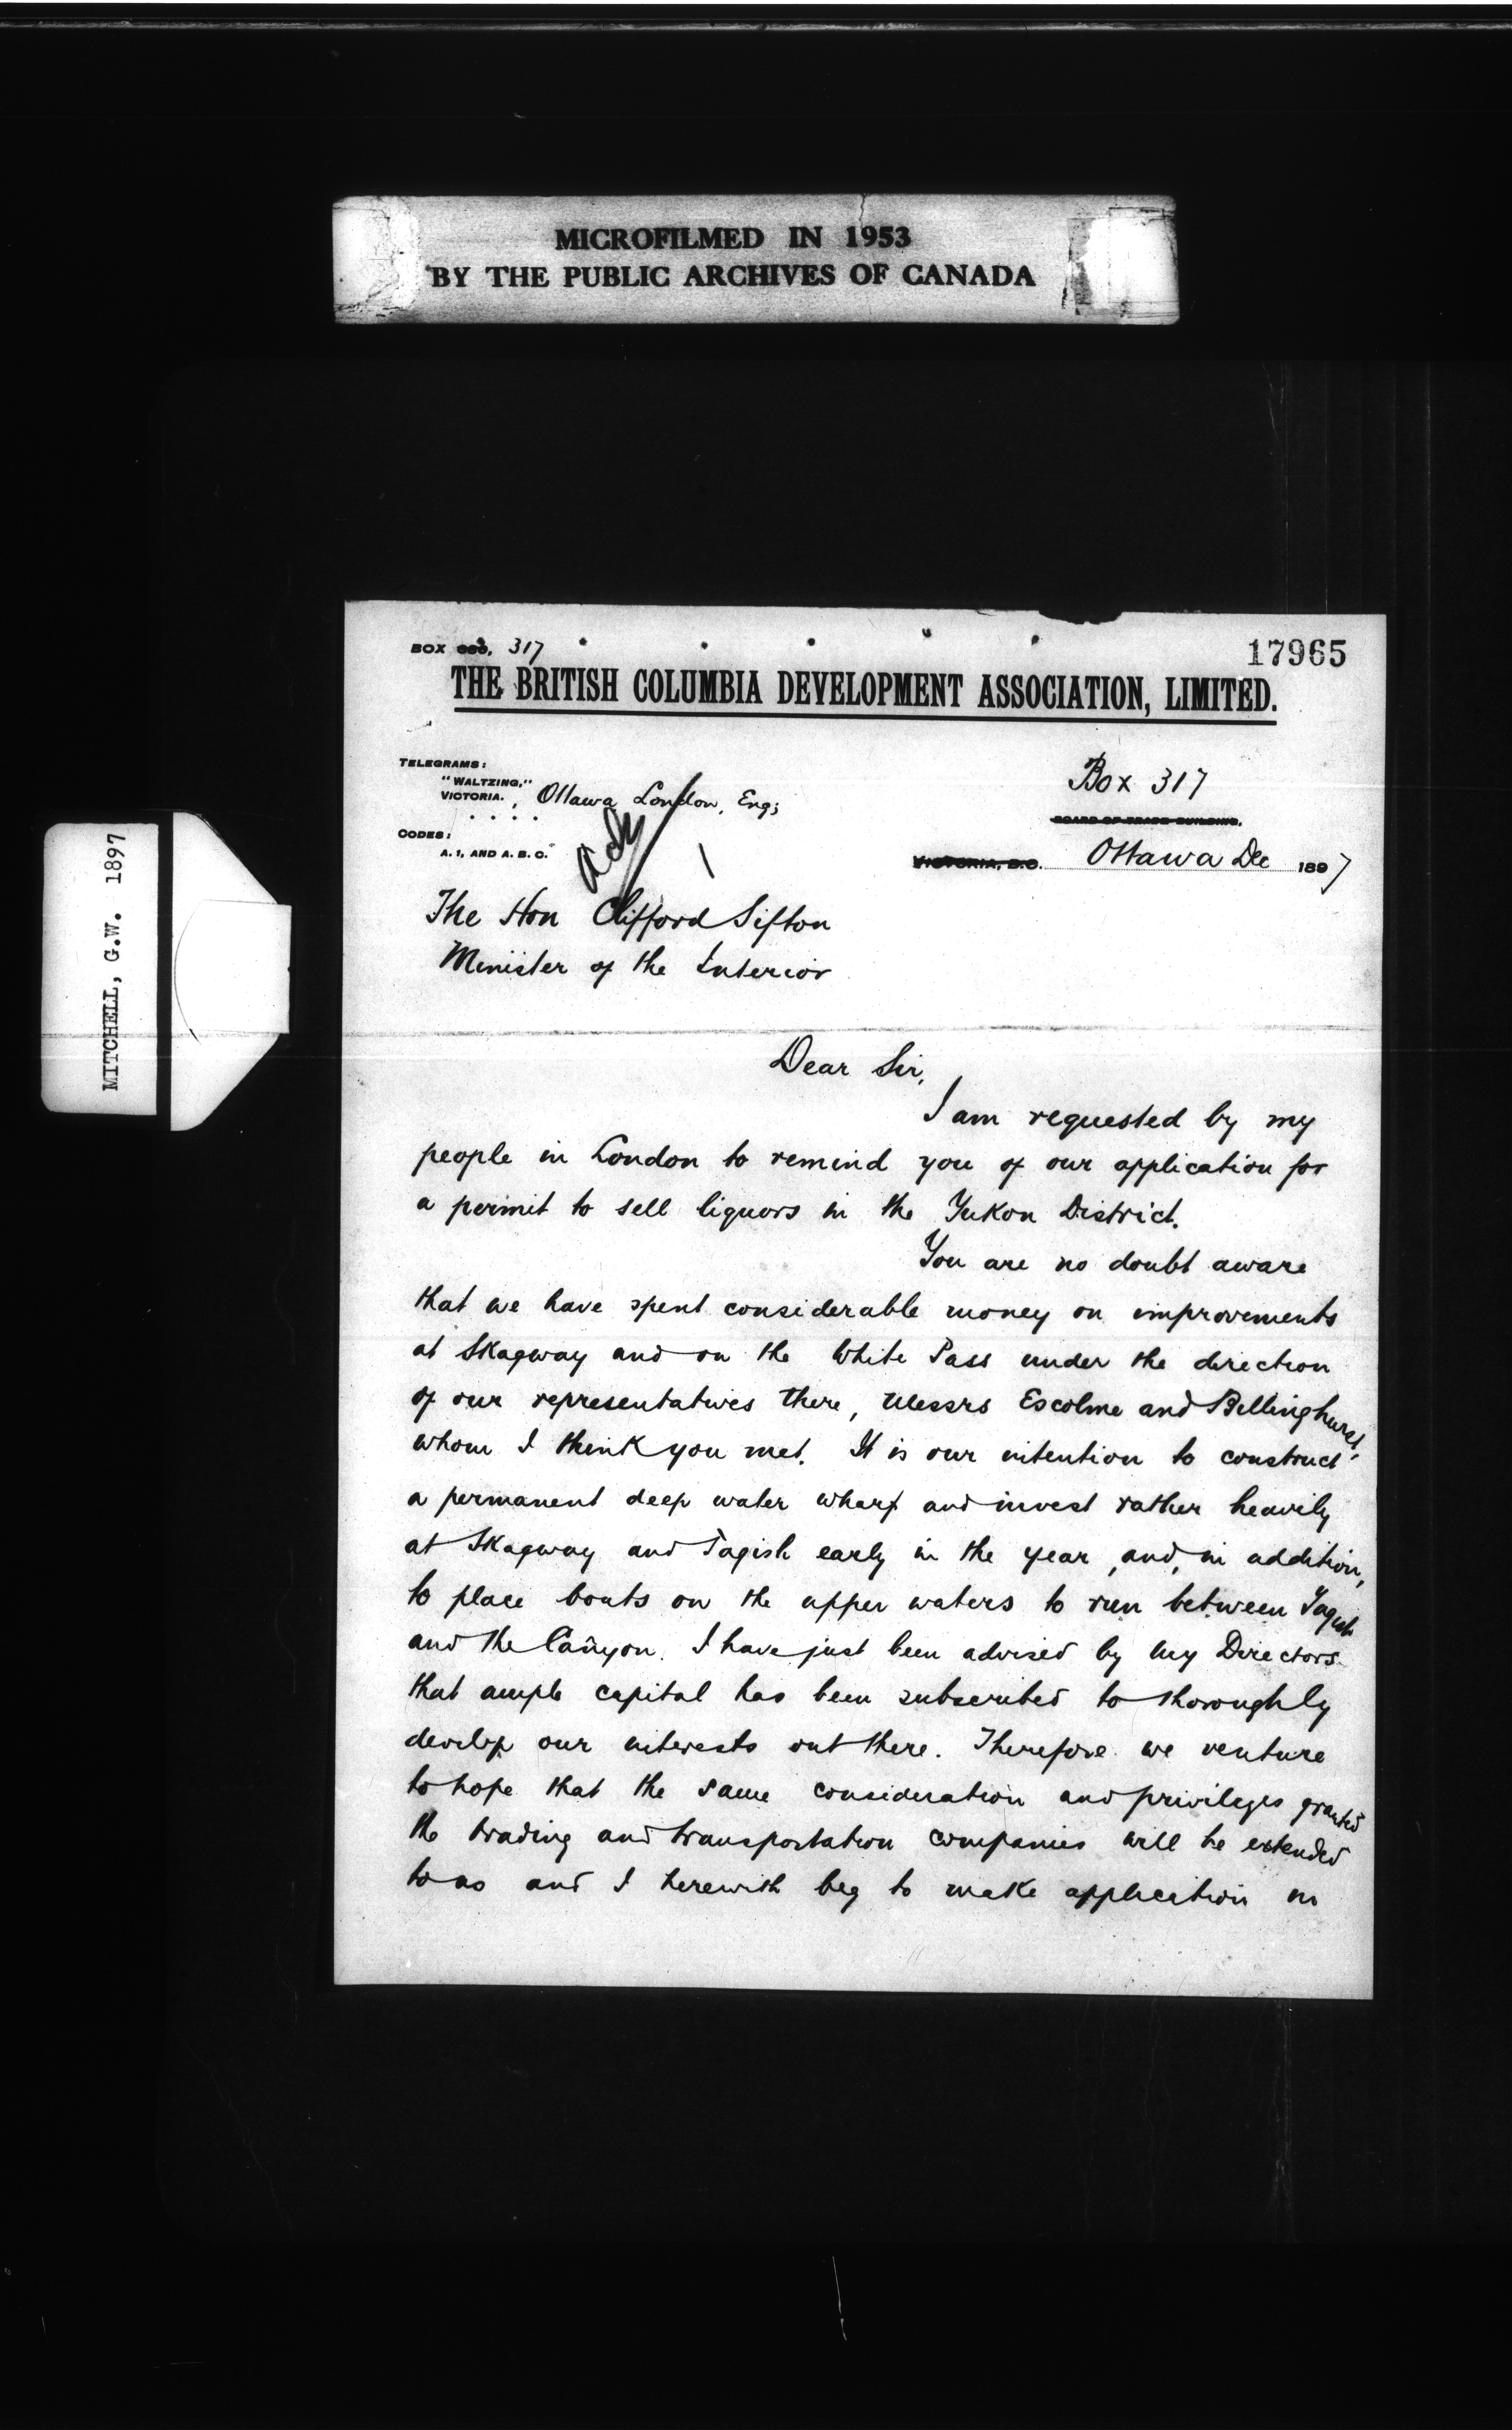 MICROFILMED IN 1953
BY THE PUBLIC ARCHIVES OF CANADA
MITCHELL, G.W. 1897
BOX 317
17965
THE BRITISH COLUMBIA DEVELOPMENT ASSOCIATION, LIMITED.
TELEGRAMS:
"WALTZING,"
VICTORIA., Ottawa London, Eng;
CODES:
A.1, AND A.B.C.
Ack
Box 317
BOARD OF TRADE BUILDING,
VICTORIA, B.C. Ottawa Dec 1897
The Hon Clifford Sifton
Minister of the Interior
Dear Sir,
I am requested by my
people in London to remind you of our application for
a permit to sell liquors in the Yukon District.
You are no doubt aware
that we have spent considerable money on improvements
at Skagway and on the White Pass under the direction
of our representatives there, Messrs Escolme and Billinghurst,
whom I think you met. It is our intention to construct
a permanent deep water wharf and invest rather heavily
at Skagway and Tagish early in the year, and, in addition,
to place boats on the upper waters to run between Tagish
and the Cañyon. I have just been advised by my Directors
that ample capital has been subscribed to thoroughly
develop our interests out there. Therefore we venture
to hope that the same consideration and privileges granted
the trading and transportation companies will be extended
to us and I herewith beg to make application in